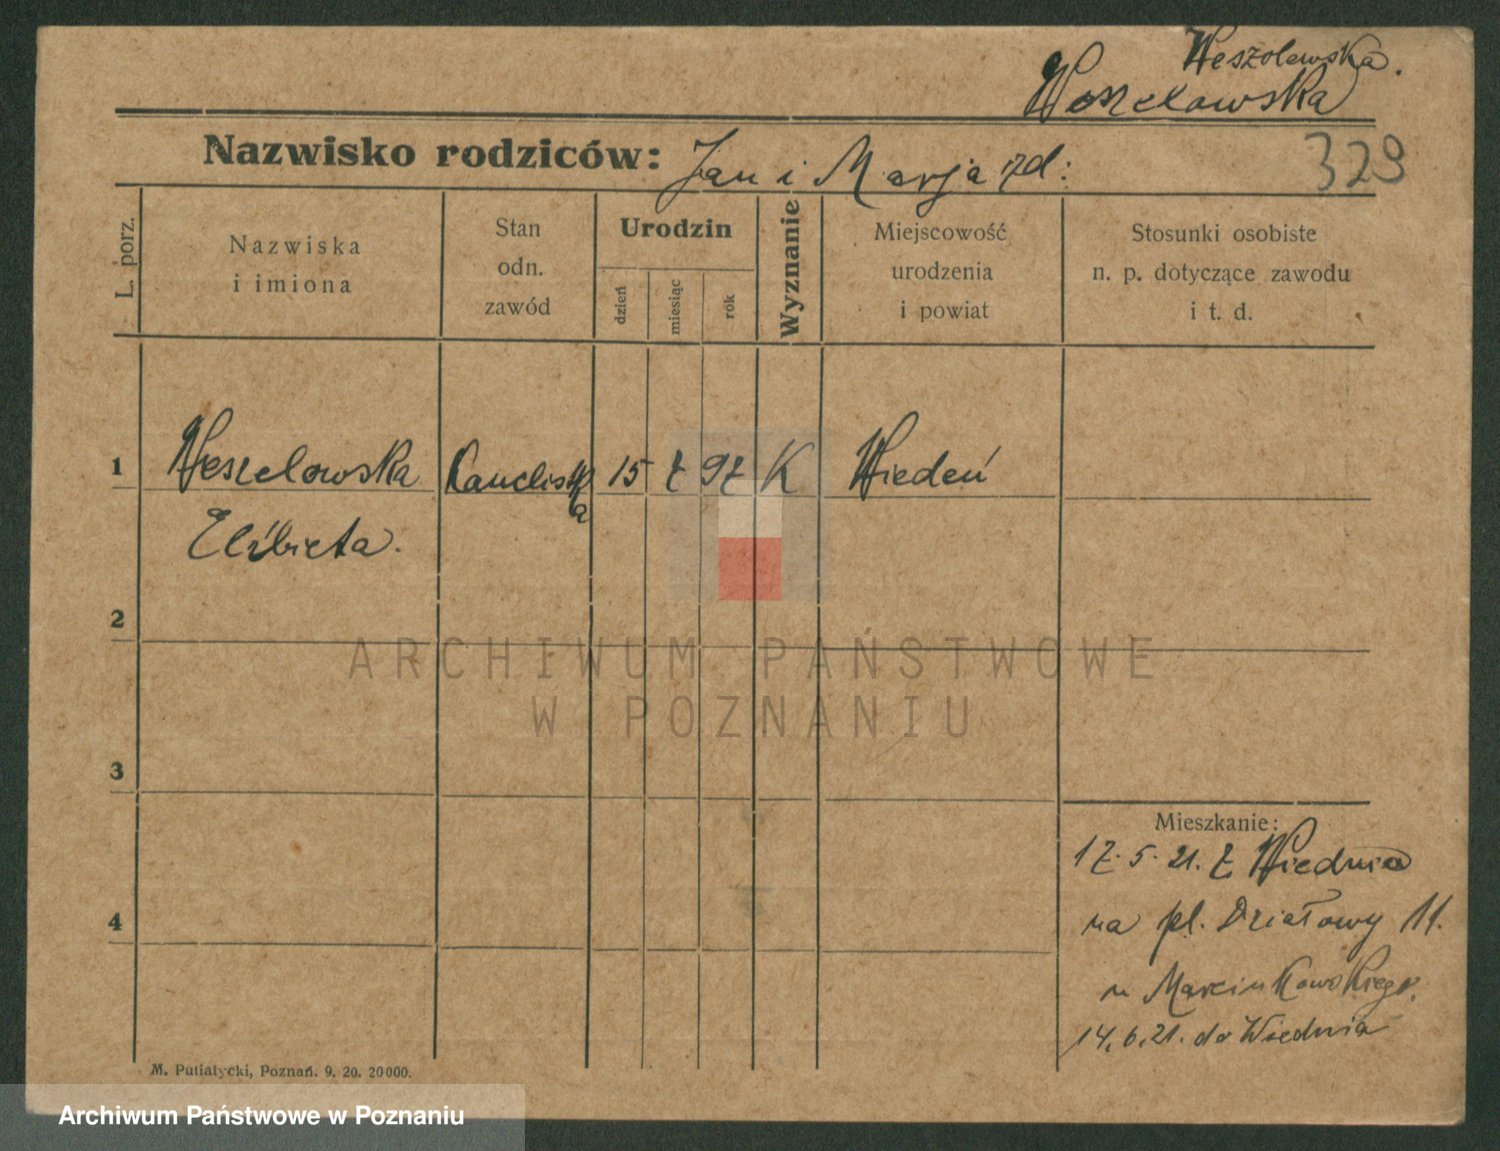 Weszolowska.
Weszelowska
Nazwisko rodziców: Jan i Marja zd:
329
L. porz.
Nazwiska
i imiona
Stan
odn.
zawód
Urodzin
dzień
miesiąc
rok
Wyznanie
Miejscowość
urodzenia
i powiat
Stosunki osobiste
n. p. dotyczące zawodu
i t. d.
1 Weszelowska 15 7 97 K Wiedeń
Elżbieta.
2
ARCHIWUM PAŃSTWOWE
W POZNANIU
3
Mieszkanie:
17. 5. 21. z Wiednia
4
na pl. Działowy 11.
u Marcinkowskiego.
14. 6. 21. do Wiednia
M. Putiatycki, Poznań. 9. 20. 20000.
Archiwum Państwowe w Poznaniu